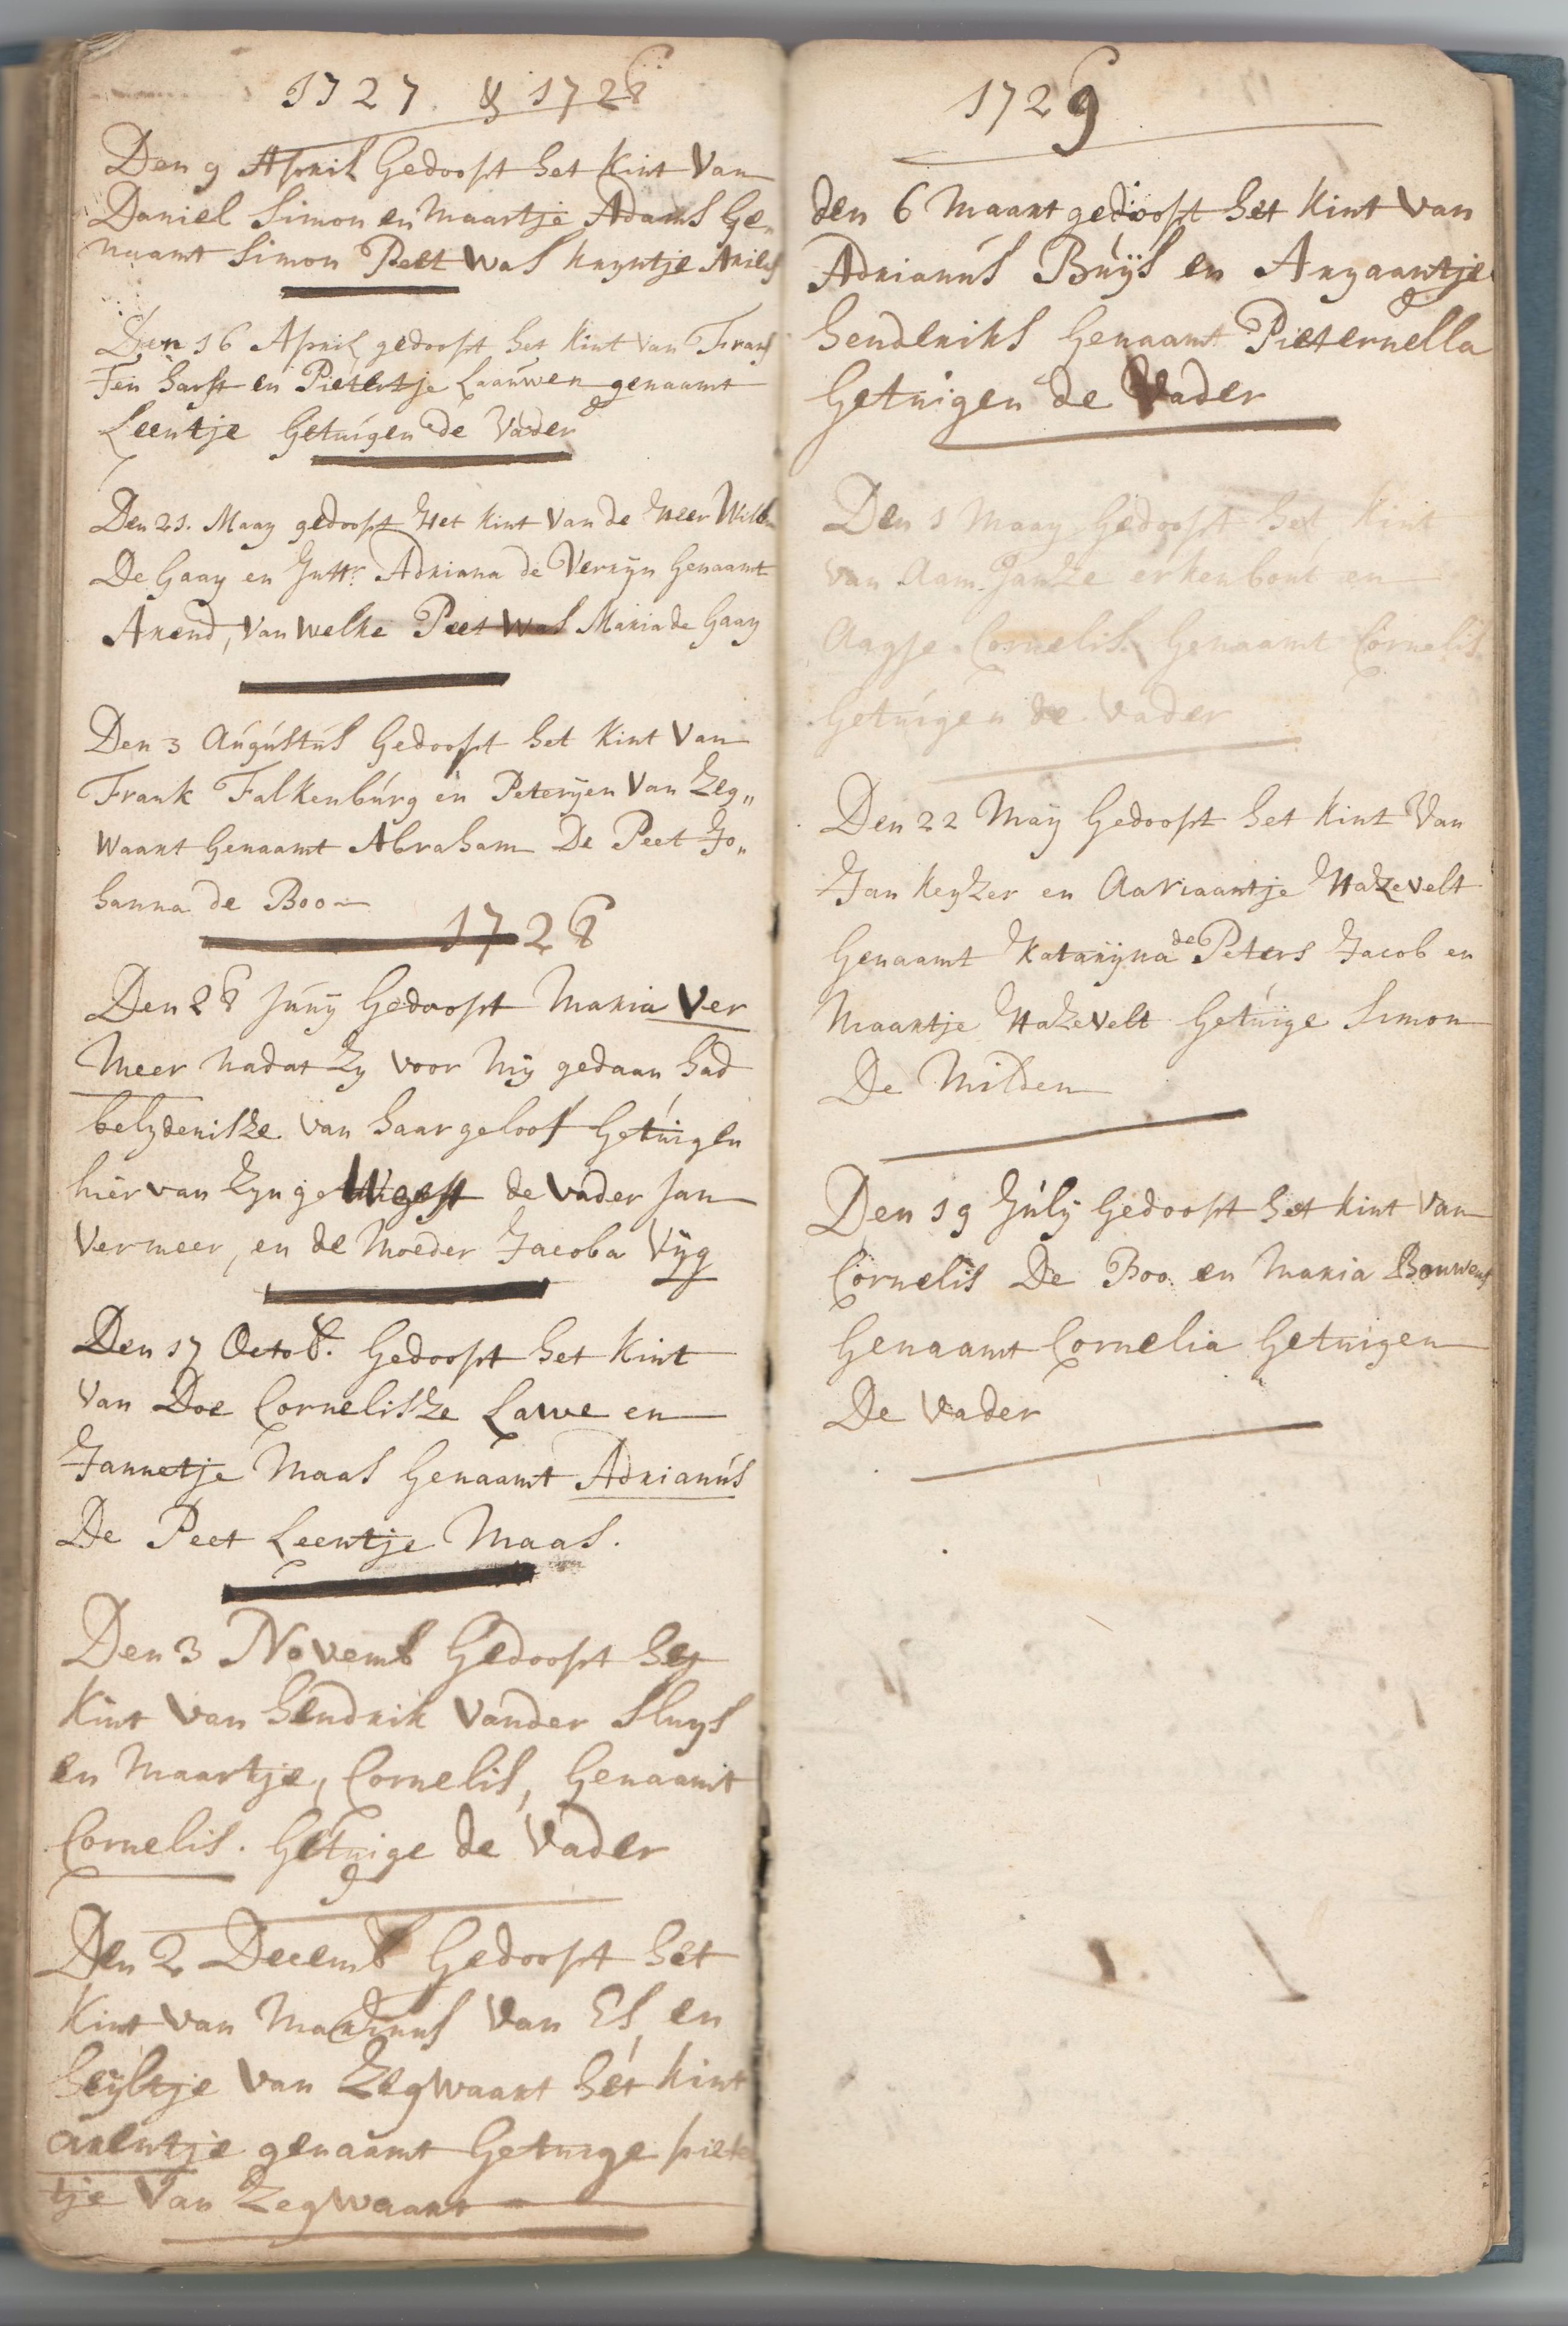 1727 & 1728
Den 9 April Gedoopt het kint van
Daniel Simon en Maartje Adams Ge„
naamt Simon Peet was Knyntje Ariens
Den 16 April gedoopt het kint van Frans
Tein harst en Pietertje Laauwen genaamt
Leentje Getuigen de Vader
Den 21. Maay gedoopt Het kint van de Heer Will
De Gaay en Juffr Adriana de Veryn Genaamt
Arend, van welke Peet was Maria de Gaay
Den 3 Augustus Gedoopt het kint van
Frank Falkenburg en Peteryen Van Zeg„
waart Genaamt Abraham De Peet Jo„
hanna de Boo
1728
Den 28 Juny Gedoopt Maria Ver
meer nadat Zy voor My gedaan had
belydenisze van haar geloof Getuigen
hier van Zyn geweest de vader Jan
Vermeer, en de Moeder Jacoba Vyg
Den 17 Octob. Gedoopt het kint
van Doe Cornelisze Lawe en
Jannetje Maas Genaamt Adrianus
De Peet Leentje Maas.
Den 3 Novemb Gedoopt het
kint van hendrik vander Sluys
en Maartje, Cornelis, Genaamt
Cornelis. Getuige de Vader
Den 2 Decemb Gedoopt het
kint van Martinus van Es en
heyltje van Zegwaart het kint
arentje genaamt Getuige piete
tje van Zegwaart
1729
den 6 Maart gedoopt het kint van
Adrianus Buys en Aryaantje
hendenriks Genaamt Pieternella
Getuigen de Vader
Den 1 Maay Gedoopt het kint
van Aam Janze erkenbout en
Aagje Cornelis Genaamt Cornelis
Getuigen de Vader
Den 22 May Gedoopt het kint van
Jan Keyzer en Aariaantje Hazevelt
Genaamt Kataryna de Peters Jacob en
Maartje Hazevelt Getuige Simon
De Milden
Den 19 July Gedoopt het kint van
Cornelis De Boo en Maria Bouwens
Genaamt Cornelia Getuigen
De Vader